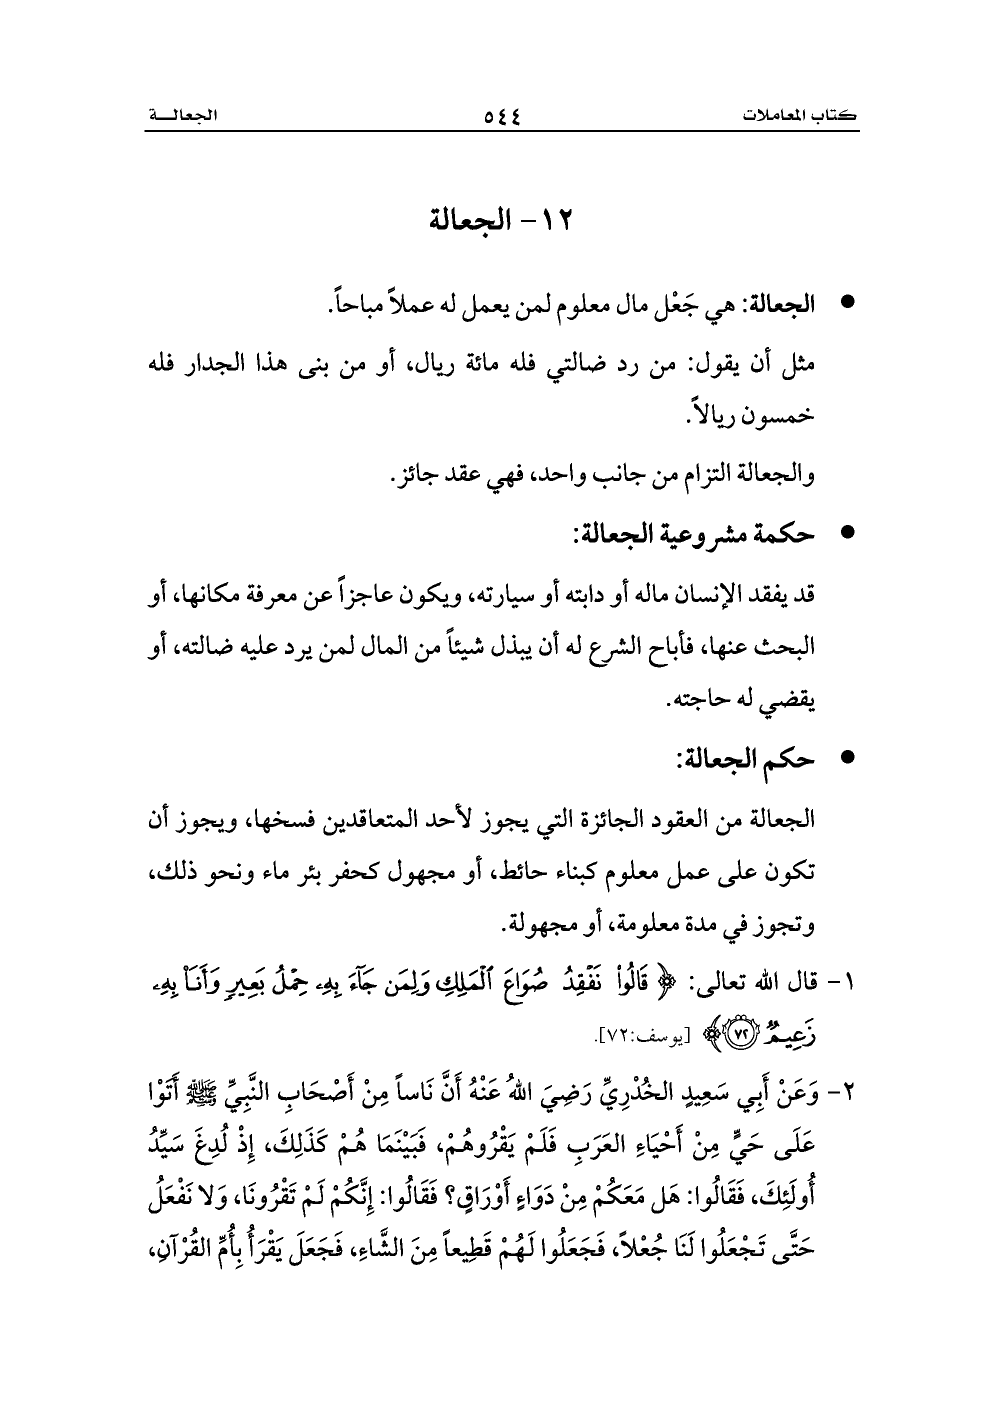 كتاب المعاملات ٥٤٤ الجعالـــة
١٢- الجعالة
● الجعالة: هي جَعْل مال معلوم لمن يعمل له عملاً مباحاً.
مثل أن يقول: من رد ضالتي فله مائة ريال، أو من بنى هذا الجدار فله
خمسون ريالاً.
والجعالة التزام من جانب واحد، فهي عقد جائز.
● حكمة مشروعية الجعالة:
قد يفقد الإنسان ماله أو دابته أو سيارته، ويكون عاجزاً عن معرفة مكانها، أو
البحث عنها، فأباح الشرع له أن يبذل شيئاً من المال لمن يرد عليه ضالته، أو
يقضي له حاجته.
● حكم الجعالة:
الجعالة من العقود الجائزة التي يجوز لأحد المتعاقدين فسخها، ويجوز أن
تكون على عمل معلوم كبناء حائط، أو مجهول كحفر بئر ماء ونحو ذلك،
وتجوز في مدة معلومة، أو مجهولة.
١- قال الله تعالى: ﴿ قَالُواْ نَفْقِدُ صُوَاعَ ٱلْمَلِكِ وَلِمَن جَآءَ بِهِۦ حِمْلُ بَعِيرٍ وَأَنَا۠ بِهِۦ
زَعِيمٌ ﴿٧٢﴾ [يوسف:٧٢].
٢- وَعَنْ أَبِي سَعِيدٍ الخُدْرِيِّ رَضِيَ اللهُ عَنْهُ أَنَّ نَاساً مِنْ أَصْحَابِ النَّبِيِّ ﷺ أَتَوْا
عَلَى حَيٍّ مِنْ أَحْيَاءِ العَرَبِ فَلَمْ يَقْرُوهُمْ، فَبَيْنَمَا هُمْ كَذَلِكَ، إِذْ لُدِغَ سَيِّدُ
أُولَئِكَ، فَقَالُوا: هَل مَعَكُمْ مِنْ دَوَاءٍ أَوْرَاقٍ؟ فَقَالُوا: إِنَّكُمْ لَمْ تَقْرُونَا، وَلا نَفْعَلُ
حَتَّى تَجْعَلُوا لَنَا جُعْلاً، فَجَعَلُوا لَهُمْ قَطِيعاً مِنَ الشَّاءِ، فَجَعَلَ يَقْرَأُ بِأُمِّ القُرْآنِ،